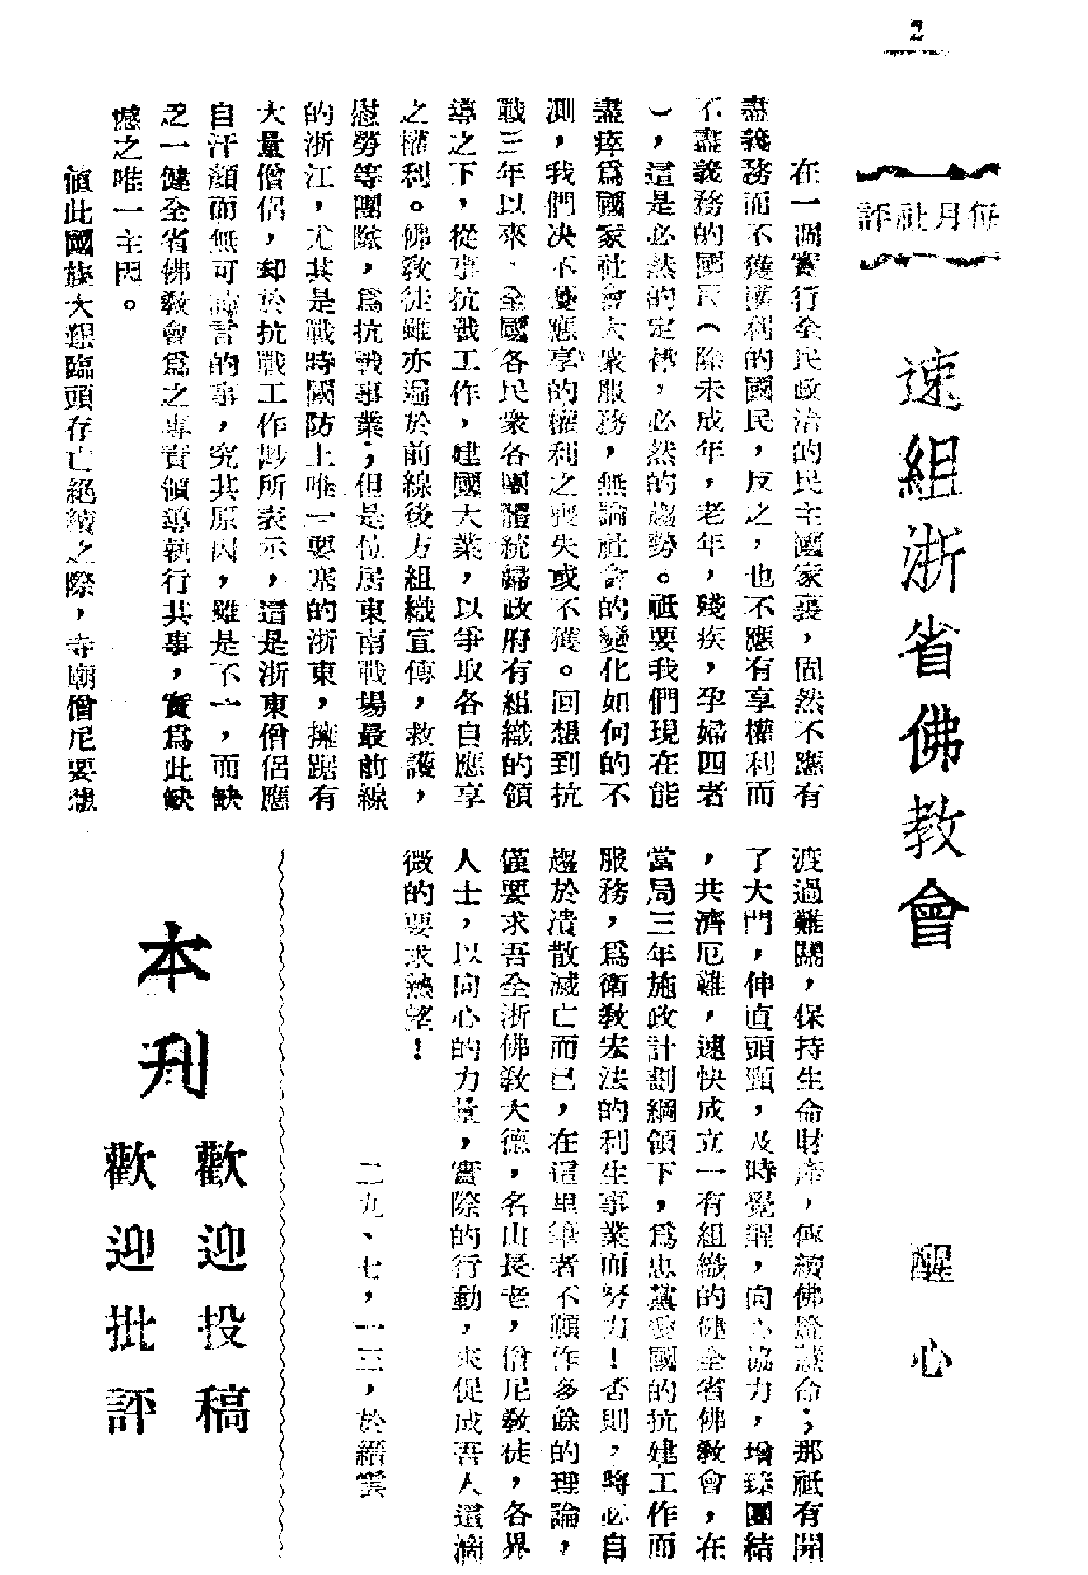 2
每月社評
速組浙省佛教會
醒心
在一個實行全民政治的民主國家裏，固然不應有
盡義務而不獲權利的國民，反之，也不應有享權利而
不盡義務的國民（除未成年，老年，殘疾，孕婦四者
），這是必然的定律，必然的趨勢。祇要我們現在能
盡瘁爲國家社會大衆服務，無論社會的變化如何的不
測，我們决不憂應享的權利之喪失或不獲。回想到抗
戰三年以來、全國各民衆各團體統歸政府有組織的領
導之下，從事抗戰工作，建國大業，以爭取各自應享
之權利。佛敎徒雖亦遍於前線後方組織宣傳，救護，
慰勞等團隊，爲抗戰事業；但是位居東南戰場最前線
的浙江，尤其是戰時國防上唯一要塞的浙東，擁踞有
大量僧侶，却於抗戰工作尠所表示，這是浙東僧侶應
自汗顏而無可諱言的事，究其原因，雖是不一，而缺
乏一健全省佛敎會爲之專責領導執行其事，實爲此缺
憾之唯一主因。
値此國族大難臨頭存亡絕續之際，寺廟僧尼要想
渡過難關，保持生命財產，傳續佛燈慧命；那祇有開
了大門，伸直頭頸，及時覺醒，同心協力，增臻團結
，共濟厄難，速快成立一有組織的健全省佛敎會，在
當局三年施政計劃綱領下，爲忠黨愛國的抗建工作而
服務，爲衛敎宏法的利生事業而努力！否則，將必自
趨於潰散滅亡而已，在這里筆者不願作多餘的理論，
僅要求吾全浙佛敎大德，名山長老，僧尼敎徒，各界
人士，以同心的力量，實際的行動，來促成吾人這滴
微的要求熱望！
二九、七，一三，於縉雲
本刋
歡迎投稿
歡迎批評